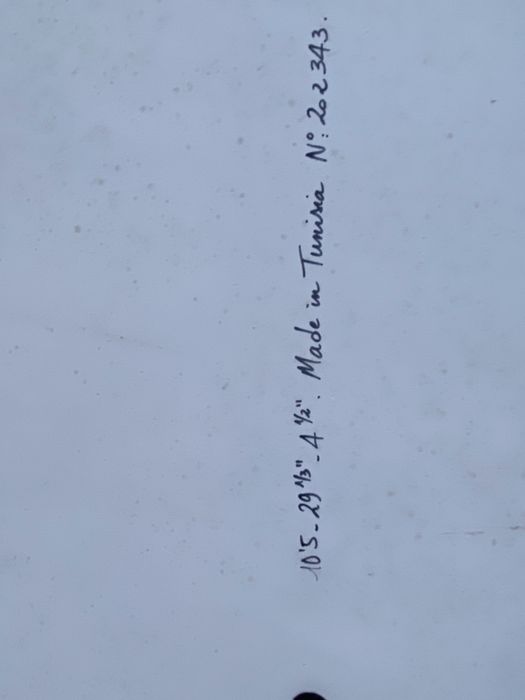 10'5 - 29 1/3" - 4 1/2". Made in Tunisia N°: 202343.